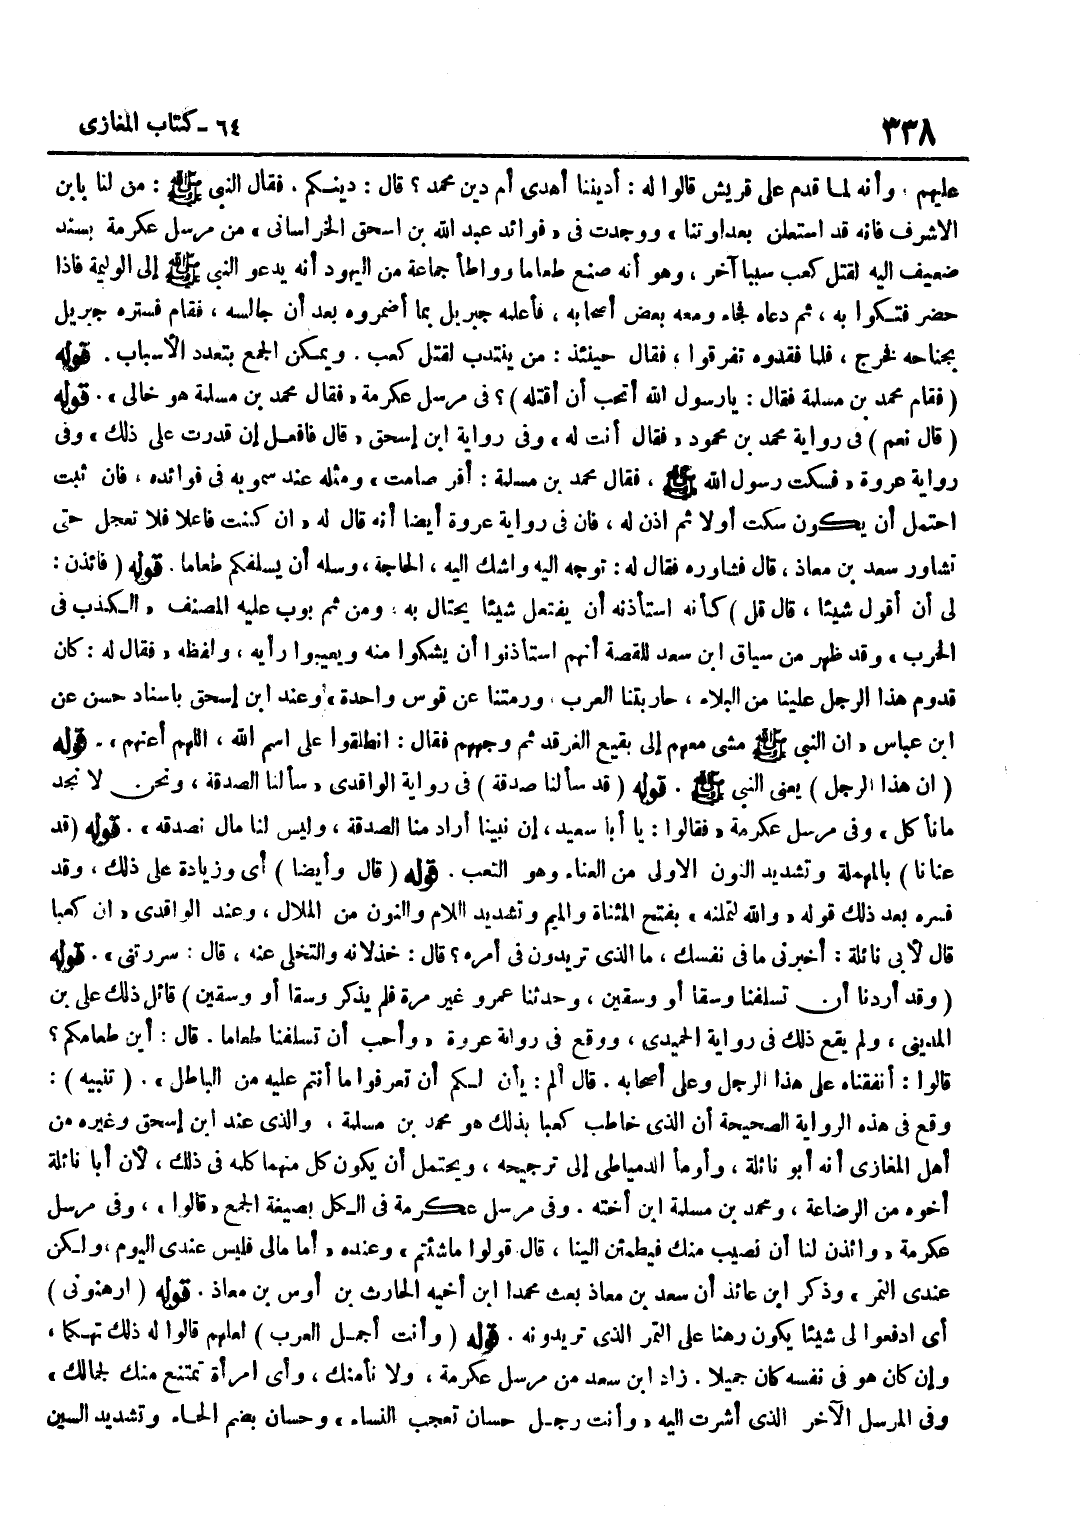 ٣٣٨ ٦٤ - كتاب المغازى
عليهم ، وأنه لما قدم على قريش قالوا له : أديننا أهدى أم دين محمد ؟ قال : دينكم . فقال النبي ﷺ : من لنا بابن
الاشرف فانه قد استعلن بعداوتنا » ووجدت فى « فوائد عبد الله بن اسحق الخراسانى » من مرسل عكرمة بسند
ضعيف اليه لقتل كعب سببا آخر ، وهو أنه صنع طعاما وواطأ جماعة من اليهود أنه يدعو النبي ﷺ إلى الوليمة فاذا
حضر فتكوا به ، ثم دعاه فجاء ومعه بعض أصحابه ، فأعلمه جبريل بما أضمروه بعد أن جالسه ، فقام فستره جبريل
بجناحه فخرج ، فلما فقدوه تفرقوا ، فقال حينئذ : من ينتدب لقتل كعب . ويمكن الجمع بتعدد الأسباب . قوله
( فقام محمد بن مسلمة فقال : يارسول الله أتحب أن أقتله ) ؟ فى مرسل عكرمة « فقال محمد بن مسلمة هو خالى » . قوله
( قال نعم ) فى رواية محمد بن محمود « فقال أنت له » وفى رواية ابن إسحق « قال فافعل إن قدرت على ذلك » وفى
رواية عروة « فسكت رسول الله ﷺ ، فقال محمد بن مسلمة : أقر صامت » ومثله عند سمويه فى فوائده ، فان ثبت
احتمل أن يكون سكت أولا ثم اذن له ، فان فى رواية عروة أيضا أنه قال له « ان كنت فاعلا فلا تعجل حتى
تشاور سعد بن معاذ ، قال فشاوره فقال له : توجه اليه واشك اليه ، الحاجة ، وسله أن يسلفكم طعاما . قوله ( فائذن :
لى أن أقول شيئا ، قال قل ) كأنه استأذنه أن يفتعل شيئا يحتال به ، ومن ثم بوب عليه المصنف « الكذب فى
الحرب » وقد ظهر من سياق ابن سعد للقصة أنهم استأذنوا أن يشكوا منه ويعيبوا رأيه ، ولفظه « فقال له : كان
قدوم هذا الرجل علينا من البلاء ، حاربتنا العرب ، ورمتنا عن قوس واحدة » وعند ابن إسحق باسناد حسن عن
ابن عباس « ان النبي ﷺ مشى معهم إلى بقيع الغرقد ثم وجههم فقال : انطلقوا على اسم الله ، اللهم أعنهم » . قوله
( ان هذا الرجل ) يعنى النبي ﷺ . قوله ( قد سألنا صدقة ) فى رواية الواقدى « سألنا الصدقة ، ونحن لا نجد
مانأكل » وفى مرسل عكرمة « فقالوا : يا أبا سعيد ، إن نبينا أراد منا الصدقة ، وليس لنا مال نصدقه » . قوله ( قد
عنانا ) بالمهملة وتشديد النون الاولى من العناء وهو التعب . قوله ( قال وأيضا ) أى وزيادة على ذلك ، وقد
فسره بعد ذلك قوله « والله لتملنه » بفتح المثناة والميم وتشديد اللام والنون من الملال ، وعند الواقدى « ان كعبا
قال لأبى نائلة : أخبرنى ما فى نفسك ، ما الذى تريدون فى أمره ؟ قال : خذلانه والتخلى عنه ، قال : سررتنى » . قوله
( وقد أردنا أن تسلفنا وسقا أو وسقين ، وحدثنا عمرو غير مرة فلم يذكر وسقا أو وسقين ) قائل ذلك على بن
المدينى ، ولم يقع ذلك فى رواية الحميدى ، ووقع فى رواية عروة « وأحب أن تسلفنا طعاما . قال : أين طعامكم ؟
قالوا : أنفقناه على هذا الرجل وعلى أصحابه . قال ألم : يأن لكم أن تعرفوا ما أنتم عليه من الباطل » . ( تنبيه ) :
وقع فى هذه الرواية الصحيحة أن الذى خاطب كعبا بذلك هو محمد بن مسلمة ، والذى عند ابن إسحق وغيره من
أهل المغازى أنه أبو نائلة ، وأومأ الدمياطى إلى ترجيحه ، ويحتمل أن يكون كل منهما كلمه فى ذلك ، لأن أبا نائلة
أخوه من الرضاعة ، ومحمد بن مسلمة ابن أخته . وفى مرسل عكرمة فى الكل بصيغة الجمع « قالوا » ، وفى مرسل
عكرمة « وائذن لنا أن نصيب منك فيطمئن الينا ، قال قولوا ماشئتم » وعنده « أما مالى فليس عندى اليوم ، ولكن
عندى التمر » وذكر ابن عائذ أن سعد بن معاذ بعث محمدا ابن أخيه الحارث بن أوس بن معاذ . قوله ( ارهنونى )
أى ادفعوا لى شيئا يكون رهنا على التمر الذى تريدونه . قوله ( وأنت أجمل العرب ) لعلهم قالوا له ذلك تهكما ،
وإن كان هو فى نفسه كان جميلا . زاد ابن سعد من مرسل عكرمة ، ولا نأمنك ، وأى امرأة تمتنع منك لجمالك »
وفى المرسل الآخر الذى أشرت اليه « وأنت رجل حسان تعجب النساء » وحسان بضم الحاء وتشديد السين